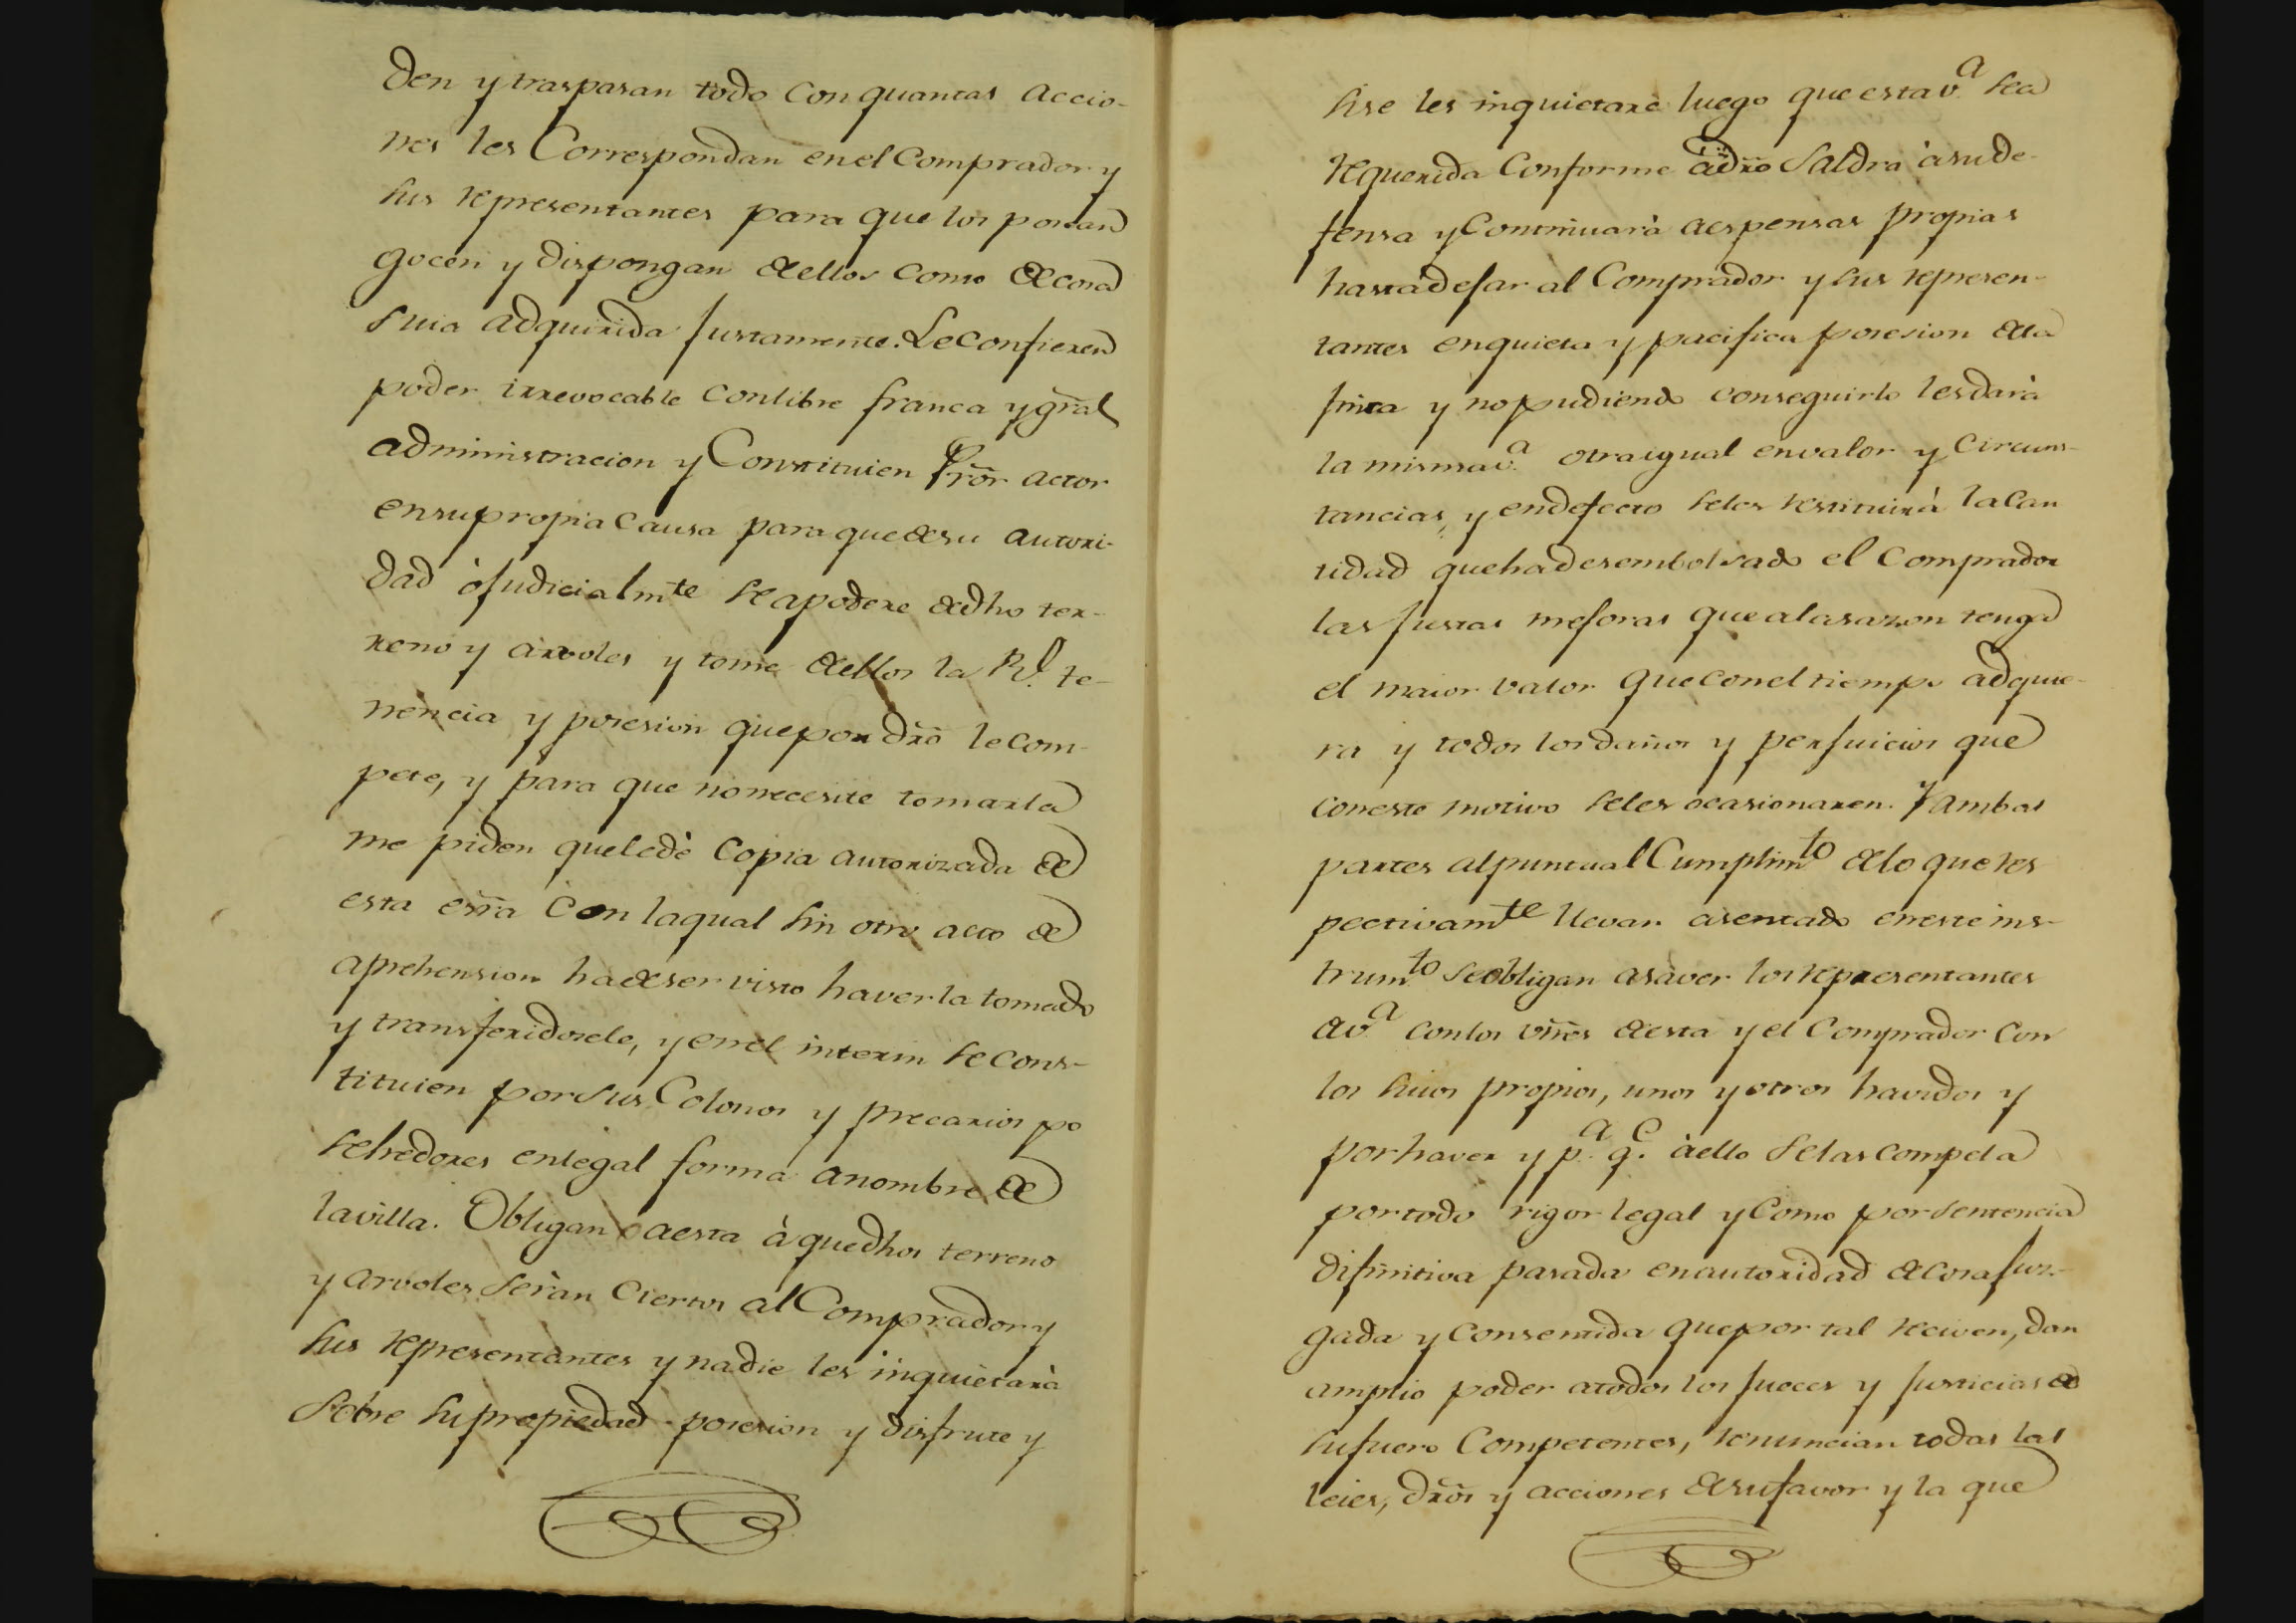 den y traspasan todo con quantas accio-
nes les Corresponden en el Comprador y
sus representantes para que los posean
gocen y dispongan de ellos como de cosa
suia adquirida justamente. Le confieren
poder irrevocable con libre franca y gral
administracion y Constituien Pror actor
en su propia Causa para que de su autori-
dad ò judicialmte se apodere de dho ter-
reno y arvoles y tome de ellos la Rl. te-
nencia y posesion que por dro le com-
pete, y para que no necesite tomarla
me piden que le dè copia autorizada de
esta esra con la qual sin otro acto de
aprehension ha de ser visto haverla tomado
y transferidosele, y en el interin se cons-
tituien por sus Colonos y precarios po
sehedores en legal forma a nombre de
la villa. Obligan a esta à que dhos terreno
y arvoles seràn ciertos al Comprador y
sus representantes y nadie les inquietarà
sobre su propiedad posesion y disfrute y
si se les inquietare luego que esta va. sea
requerida Conforme a dro saldra à su de-
fensa y Continuarà a espensas propias
hasta dejar al Comprador y sus represen-
tantes en quieta y pacifica posesion de la
finca y no pudiendo conseguirlo les darà
la misma va. otra igual en valor y circuns-
tancias, y en defecto se les restituirà la can
tidad que ha desembolsado el Comprador
las justas mejoras que a la sazon tenga
el maior valor que con el tiempo adquie-
ra y todos los daños y perjuicios que
con este motivo se les ocasionaren. Y ambas
partes al puntual Cumplimto de lo que res
pectivamte llevan asentado en este ins-
trumto. se obligan a saver los representantes
de va. con los vnes de esta y el Comprador con
los suios propios, unos y otros havidos y
por haver y pa. qe. à ello se las compela
por todo rigor legal y como por sentencia
difinitiva pasada en autoridad de cosa juz-
gada y consentida que por tal reciven, dan
amplio poder a todos los jueces y justicias de
su fuero Competentes, renuncian todas las
leies, dros y acciones de su favor y la que